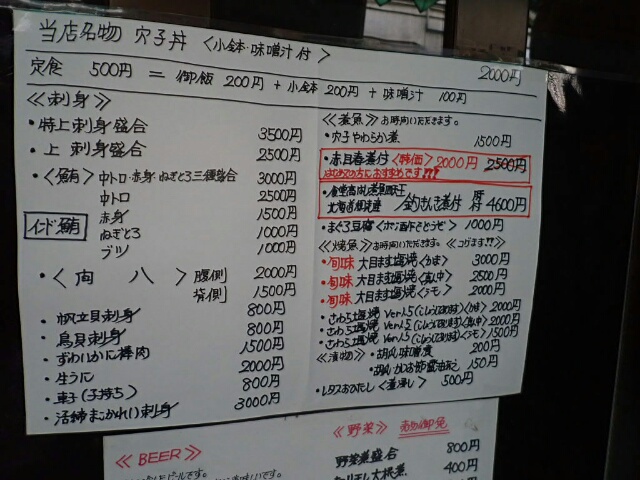 当店名物 穴子丼 <小鉢・味噌汁付> 2000円
定食 500円 = 御飯 200円 + 小鉢 200円 + 味噌汁 100円
≪刺身≫
・特上刺身盛合 3500円
・上 刺身盛合 2500円
・<鮪> 中トロ・赤身・ねぎとろ三種盛合 3000円
中トロ 2500円
インド鮪 赤身 1500円
ねぎとろ 1000円
ブツ 1000円
・<向 八> 腹側 2000円
背側 1500円
・帆立貝刺身 800円
・鳥貝刺身 800円
・ずわいかに棒肉 1500円
・生うに 2000円
・車子(子持ち) 800円
・活締まこかれい刺身 3000円
≪煮魚≫お時間いただきます。
・穴子やわらか煮 1500円
・赤目春煮付<特価> 2000円 2500円
はじめての方におすすめです!!!
北海道根室産 釣きんき煮付 4600円
・まぐろ豆腐 1000円
≪焼魚≫お時間いただきます。<こげます!!>
・旬味 大目ます塩焼<かま> 3000円
・旬味 大目ます塩焼<真中> 2500円
・旬味 大目ます塩焼<うモ> 2000円
・さわら塩焼 Ver1.5 <かま> 2000円
・さわら塩焼 Ver1.5 <真中> 2000円
・さわら塩焼 Ver1.5 <うモ> 1500円
<漬物> ・胡瓜味噌漬 200円
・胡瓜かつお節醤油あえ 150円
・レタスおひたし<煮浸し> 500円
≪BEER≫
≪野菜≫
野菜煮盛合 800円
大根煮 400円